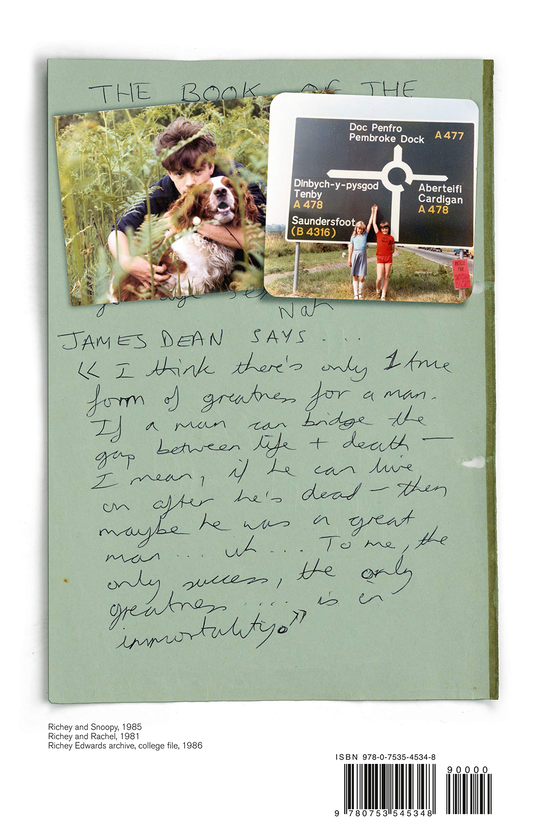 THE BOOK OF THE
Doc Penfro
Pembroke Dock A 477
Dinbych-y-pysgod
Tenby
A 478
Aberteifi
Cardigan
A 478
Saundersfoot
(B 4316)
Nah
JAMES DEAN SAYS ...
"I think there's only 1 true
form of greatness for a man.
If a man can bridge the
gap between life + death —
I mean, if he can live
on after he's dead — then
maybe he was a great
man ... uh ... To me, the
only success, the only
greatness .... is in
immortality."
Richey and Snoopy, 1985
Richey and Rachel, 1981
Richey Edwards archive, college file, 1986
ISBN 978-0-7535-4534-8
90000
9 780753 545348